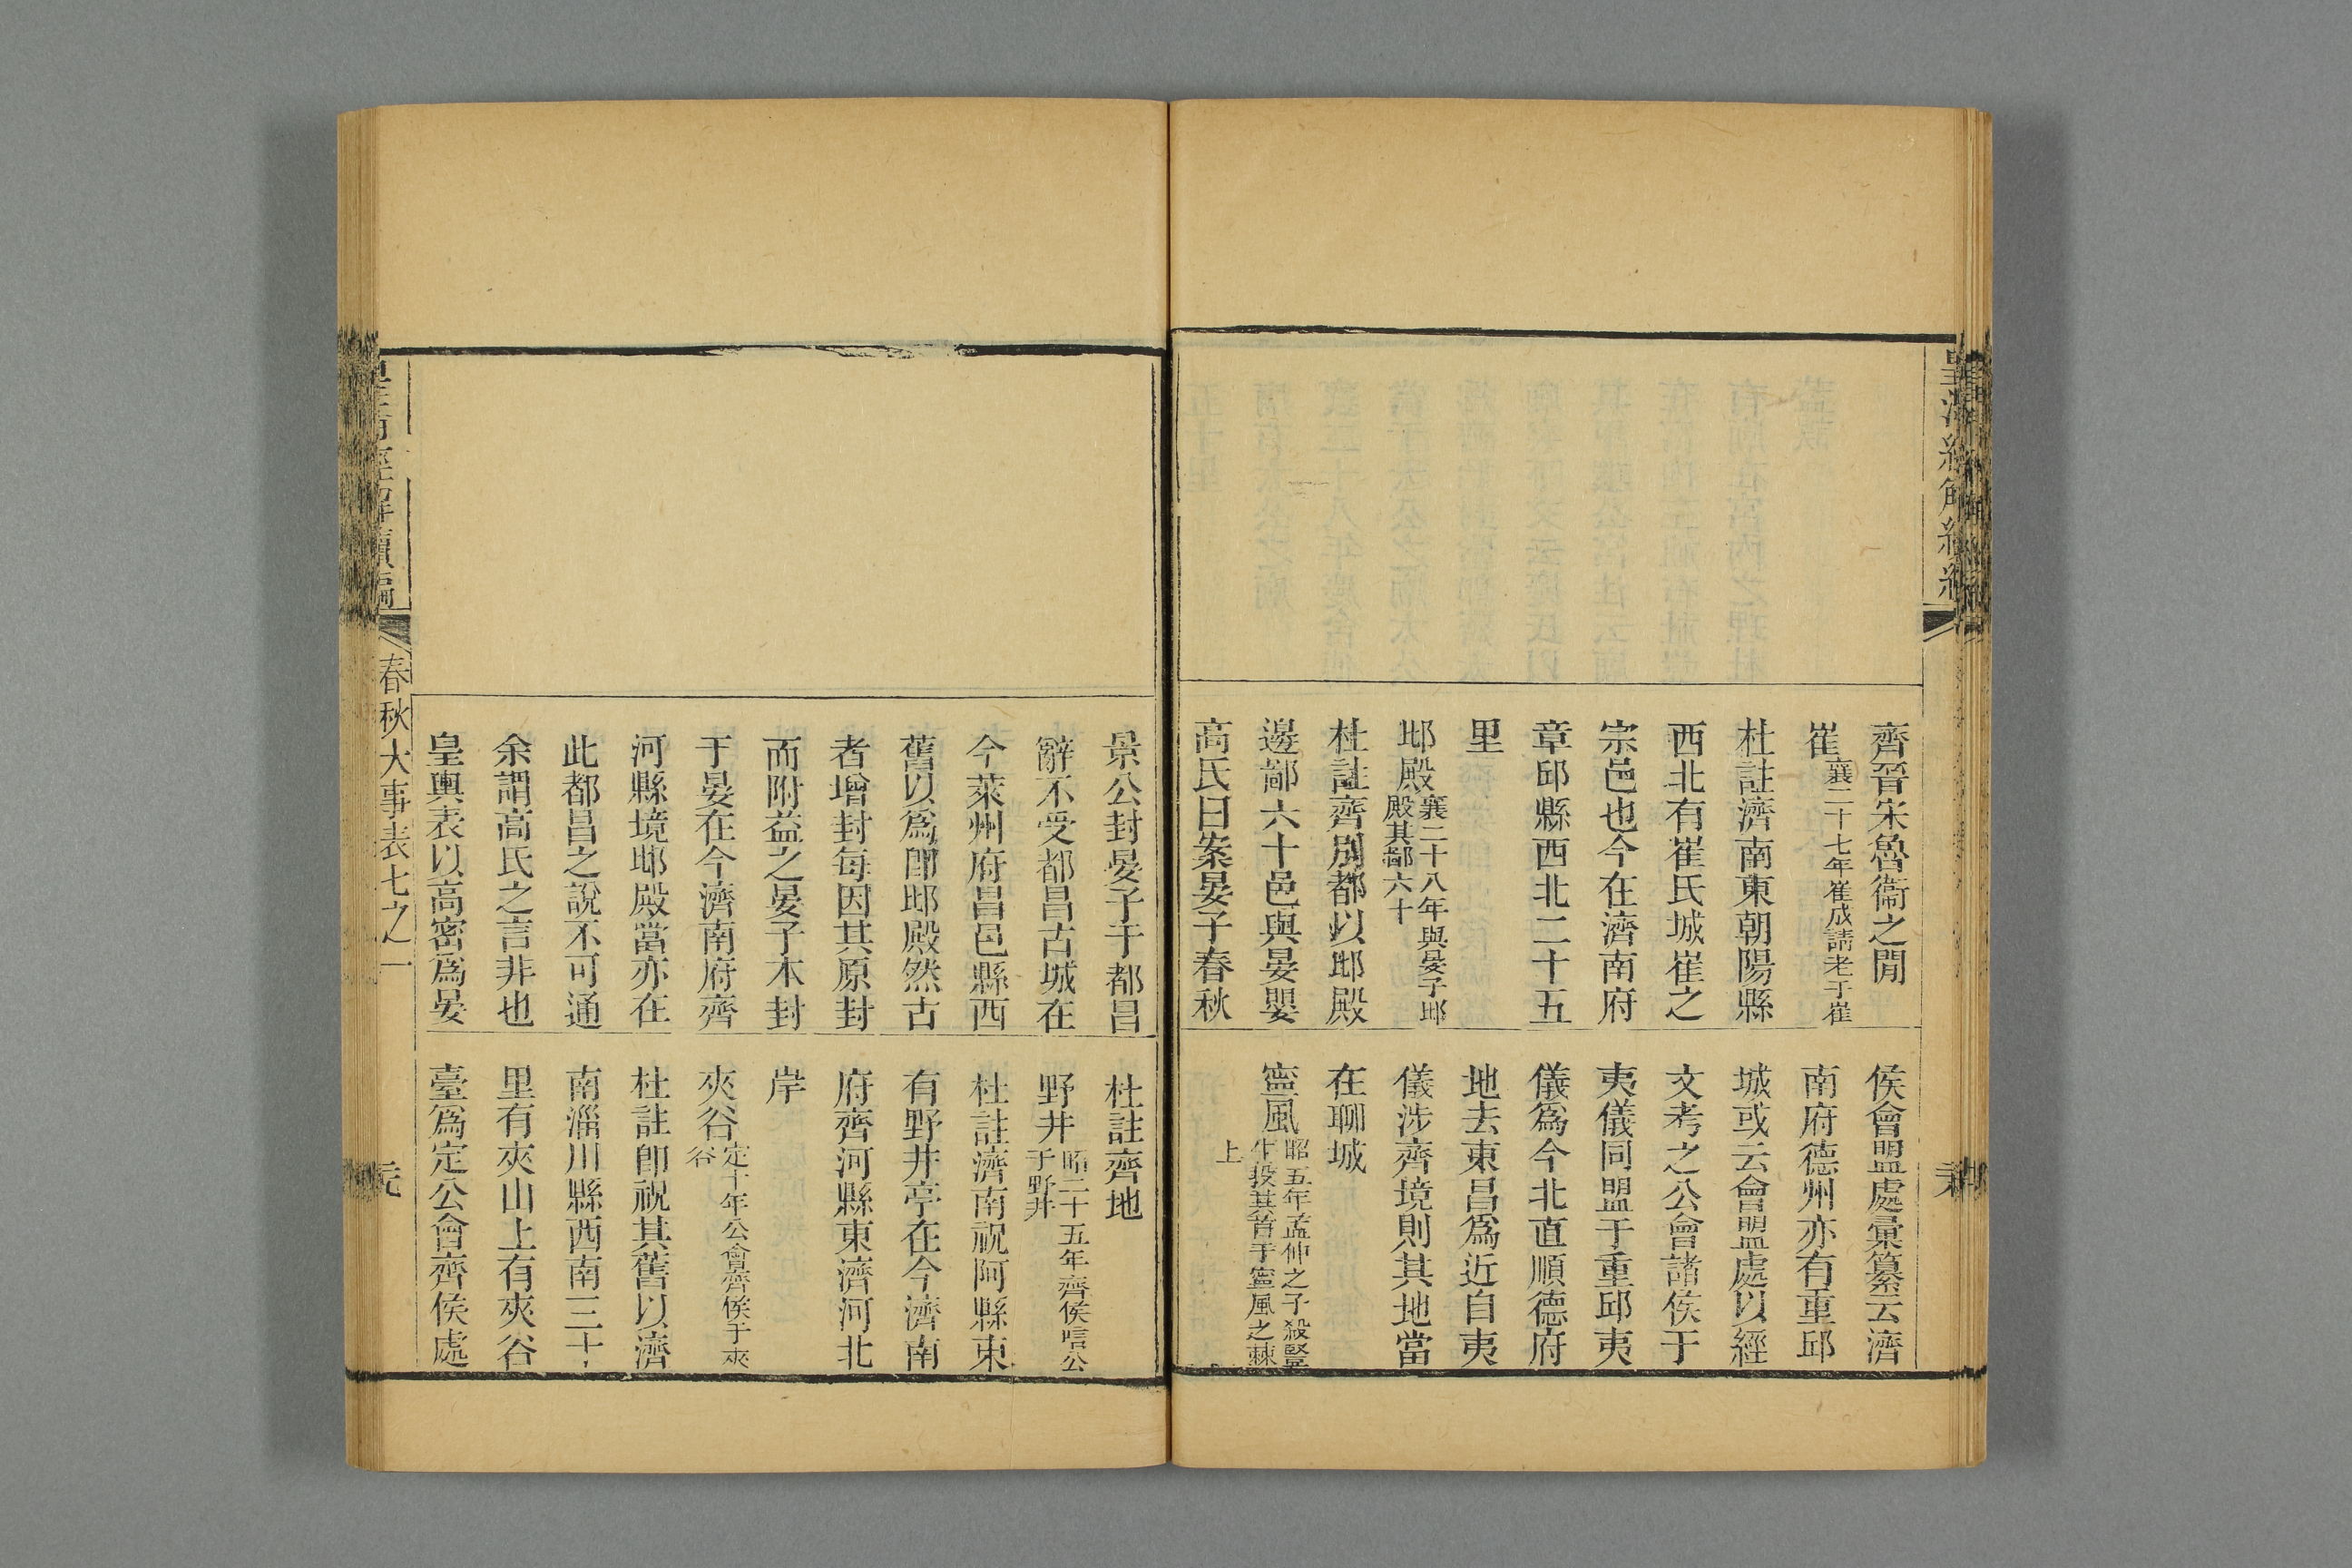 齊晉宋魯衞之閒
崔襄二十七年崔成請老于崔
杜註濟南東朝陽縣
西北有崔氏城崔之
宗邑也今在濟南府
章邱縣西北二十五
里
邶殿襄二十八年與晏子邶
殿其鄙六十
杜註齊別都以邶殿
邊鄙六十邑與晏嬰
高氏曰案晏子春秋
侯會盟處彙纂云濟
南府德州亦有重邱
城或云會盟處以經
文考之公會諸侯于
夷儀同盟于重邱夷
儀爲今北直順德府
地去東昌爲近自夷
儀涉齊境則其地當
在聊城
寧風昭五年孟仲之子殺豎
牛投其首于寧風之棘
上
景公封晏子于都昌
辭不受都昌古城在
今萊州府昌邑縣西
舊以爲卽邶殿然古
者增封每因其原封
而附益之晏子本封
于晏在今濟南府齊
河縣境邶殿當亦在
此都昌之說不可通
余謂高氏之言非也
皇輿表以高密爲晏
杜註齊地
野井昭二十五年齊侯唁公
于野井
杜註濟南祝阿縣東
有野井亭在今濟南
府齊河縣東濟河北
岸
夾谷定十年公會齊侯于夾
谷
杜註卽祝其舊以濟
南淄川縣西南三十
里有夾山上有夾谷
臺爲定公會齊侯處
春秋大事表七之一